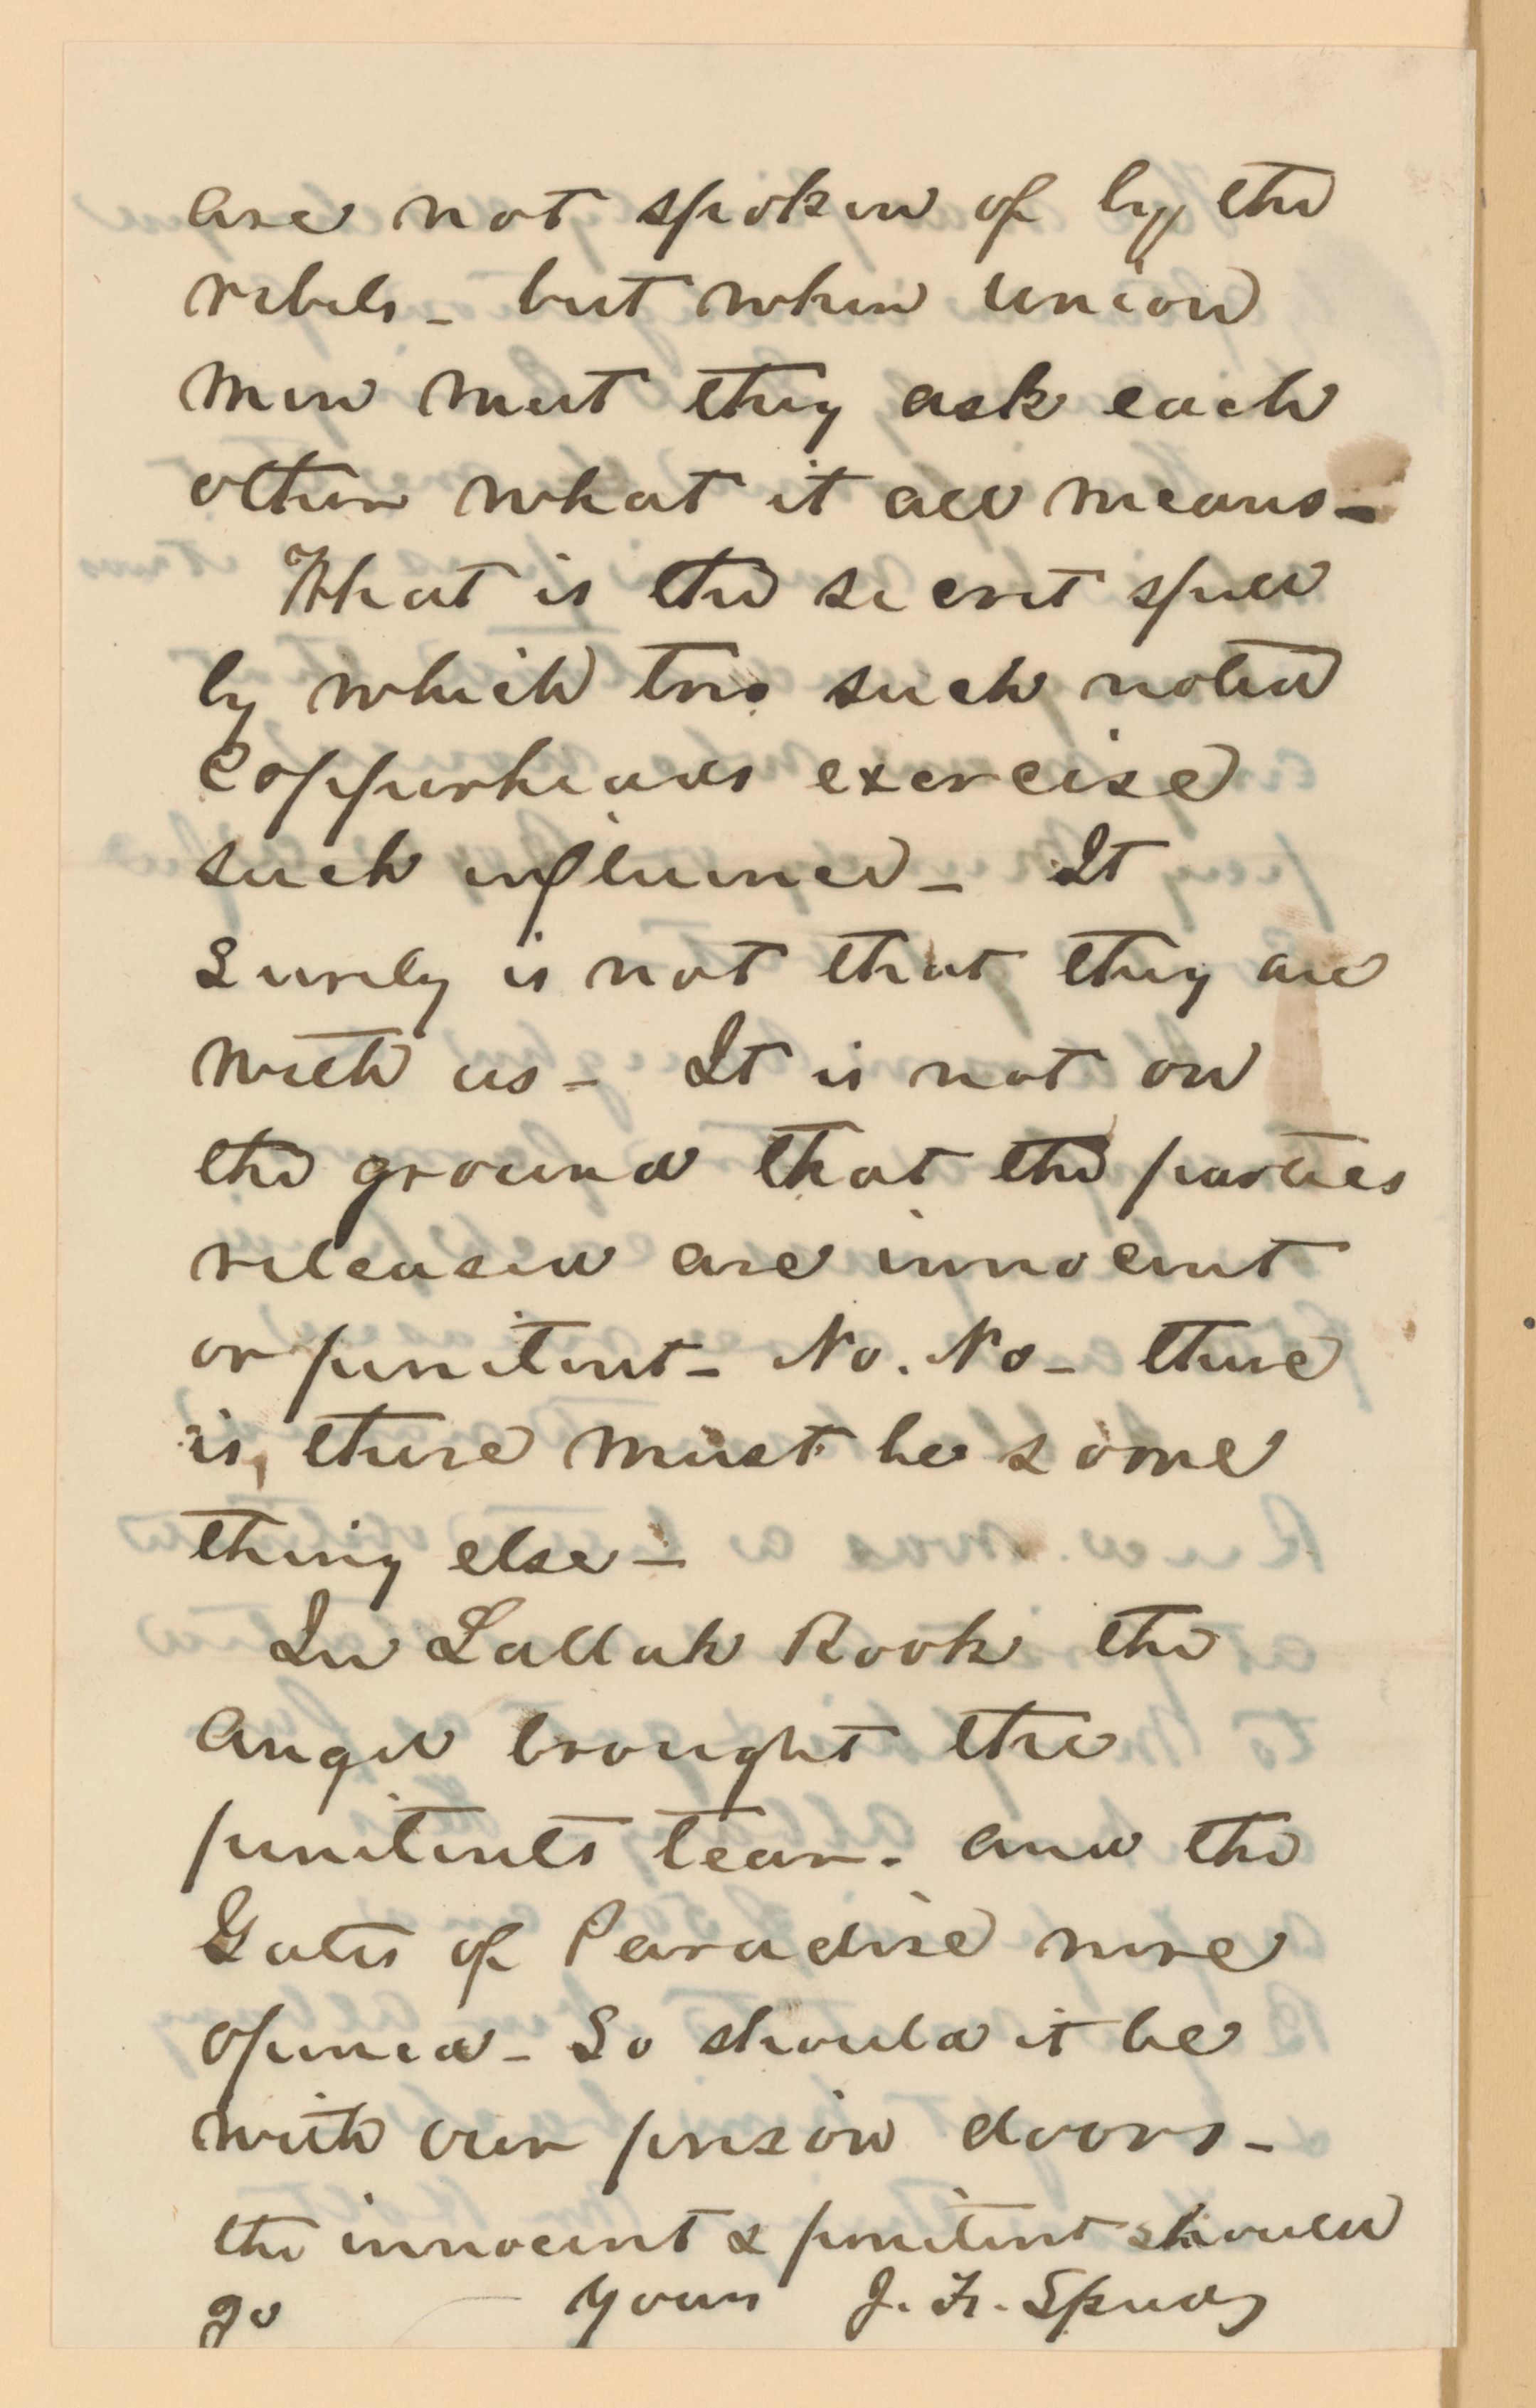 are not spoken of by the
rebels - but when Union
men meet they ask each
other what it all means -
What is the secret spell
by which two such noted
Copperheads exercise
such influence - It
surely is not that they are
with us - It is not on
the ground that the parties
released are innocent
or penitent - No. No - there
is, there must be some
thing else -
In Lallah Rook the
angel brought the
penitents tear. and the
Gates of Paradise were
opened - So should it be
with our prison doors -
the innocent & penitent should
go Yours J. F. Speed